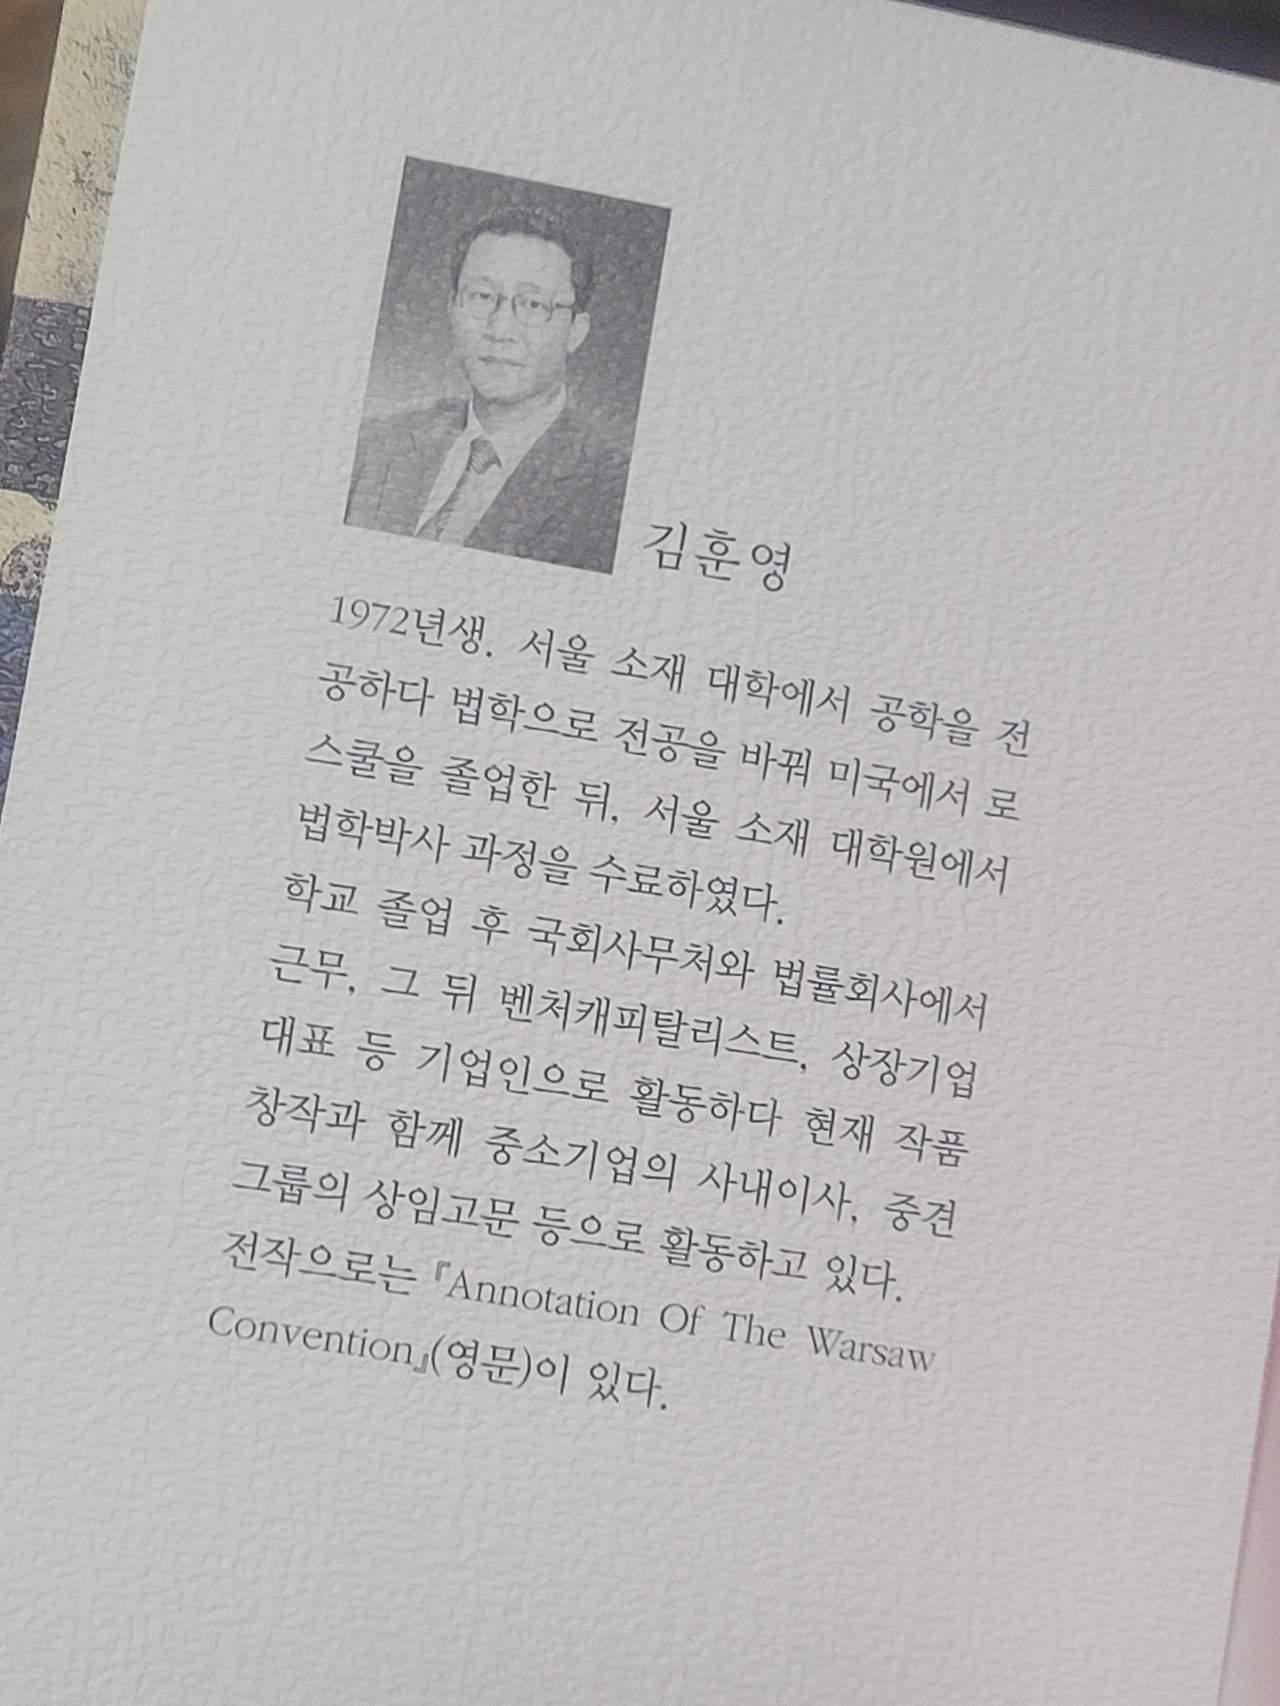 김훈영
1972년생. 서울 소재 대학에서 공학을 전
공하다 법학으로 전공을 바꿔 미국에서 로
스쿨을 졸업한 뒤, 서울 소재 대학원에서
법학박사 과정을 수료하였다.
학교 졸업 후 국회사무처와 법률회사에서
근무, 그 뒤 벤처캐피탈리스트, 상장기업
대표 등 기업인으로 활동하다 현재 작품
창작과 함께 중소기업의 사내이사, 중견
그룹의 상임고문 등으로 활동하고 있다.
전작으로는 『Annotation Of The Warsaw
Convention』(영문)이 있다.